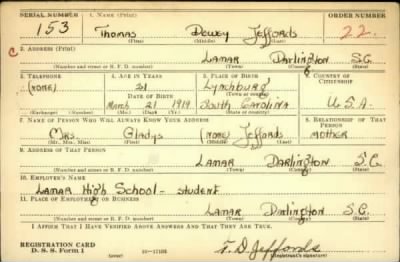 SERIAL NUMBER 1. NAME (Print) ORDER NUMBER
153 Thomas Dewey Jeffords 22.
(First) (Middle) (Last)
2. ADDRESS (Print)
C Lamar Darlington S.C.
(Number and street or R. F. D. number) (Town) (County) (State)
3. TELEPHONE 4. AGE IN YEARS 5. PLACE OF BIRTH 6. COUNTRY OF CITIZENSHIP
(none) 21 Lynchburg
DATE OF BIRTH (Town or county)
March 21 1919 South Carolina U.S.A.
(Exchange) (Number) (Mo.) (Day) (Yr.) (State or country)
7. NAME OF PERSON WHO WILL ALWAYS KNOW YOUR ADDRESS 8. RELATIONSHIP OF THAT PERSON
Mrs. Gladys (none) Jeffords Mother
(Mr., Mrs., Miss) (First) (Middle) (Last)
9. ADDRESS OF THAT PERSON
Lamar Darlington S.C.
(Number and street or R. F. D. number) (Town) (County) (State)
10. EMPLOYER'S NAME
Lamar High School - student
11. PLACE OF EMPLOYMENT OR BUSINESS
Lamar Darlington S.C.
(Number and street or R. F. D. number) (Town) (County) (State)
I AFFIRM THAT I HAVE VERIFIED ABOVE ANSWERS AND THAT THEY ARE TRUE.
REGISTRATION CARD
D. S. S. Form 1 (over) T. D. Jeffords
(Registrant's signature)